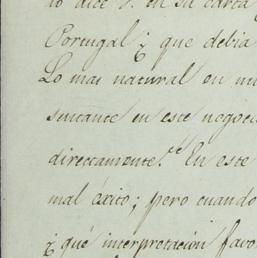 lo dice V. en su carta
Portugal; que debia
Lo mas natural en mi
sentante en este negoc
directamente. En este
mal éxito; pero cuando
¿qué interpretacion favo